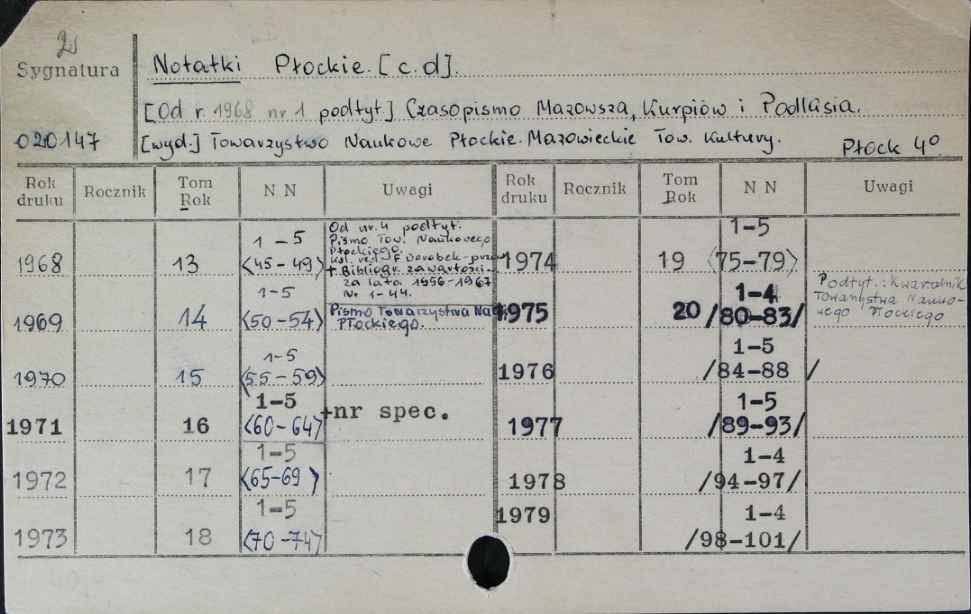 2
Sygnatura
Notatki Płockie. [c.d].
[Od r. 1968 nr 1 podtyt.] Czasopismo Mazowsza, Kurpiów i Podlasia.
020147
[wyd.] Towarzystwo Naukowe Płockie. Mazowieckie Tow. Kultury.
Płock 4°
Rok druku Rocznik Tom Rok NN Uwagi Rok druku Rocznik Tom Rok NN Uwagi
1968 13 1-5 <45-49>
Od nr. 4 podtyt.
Pismo Tow. Naukowego
Płockiego.
F. Dorobek
+ Bibliogr. zawartości
za lata 1956-1967
Nr 1-44.
1969 14 1-5 <50-54>
Pismo Towarzystwa Nauk.
Płockiego.
1970 15 1-5 <55-59>
1971 16 1-5 <60-64> +nr spec.
1972 17 1-5 <65-69>
1973 18 1-5 <70-74>
1974 19 1-5 <75-79>
1975 20 1-4 /80-83/
Podtyt.: Kwartalnik
Towarzystwa Nauko-
wego Płockiego
1976 1-5 /84-88 /
1977 1-5 /89-93/
1978 1-4 /94-97/
1979 1-4 /98-101/